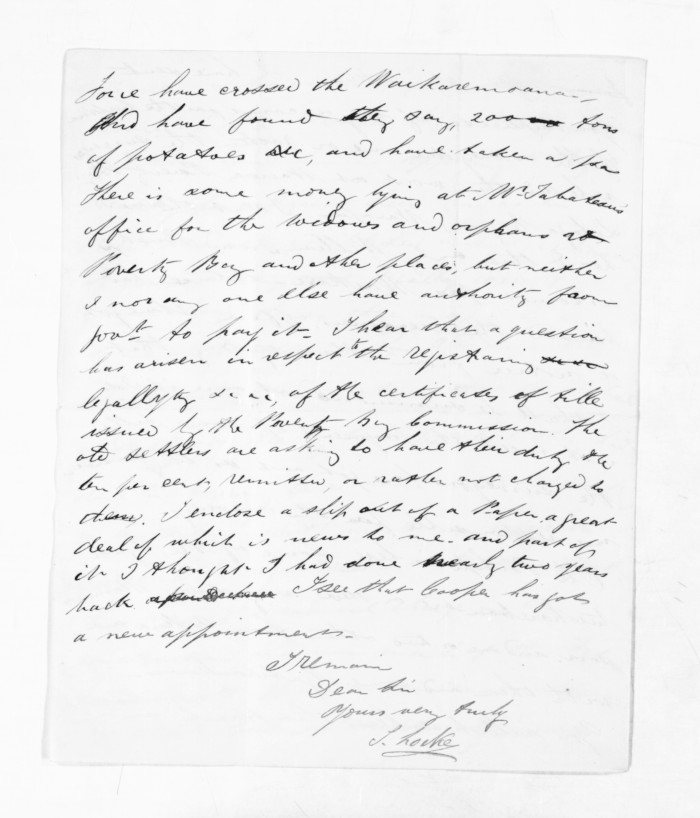 Force have crossed the Waikaremoana -,
And have found they say, 200 tons
of potatoes &c, and have taken a pa
There is some money lying at Mr
office for the widows and orphans at
Poverty Bay and other places, but neither
I nor any one else have authority from
Govt. to pay it - I hear that a question
has arisen in respect to the registering
legality &c &c, of the certificates of title
issued by the Poverty Bay Commission. The
old settlers are asking to have their duty the
ten per cent, remitted, or rather not charged to
them. I enclose a slip out of a Paper, a great
deal of which is news to me - and part of
it I thought I had done nearly two years
back I see that Cooper has got
a new appointment -
I remain
Dear Sir
Yours very truly
S. Locke